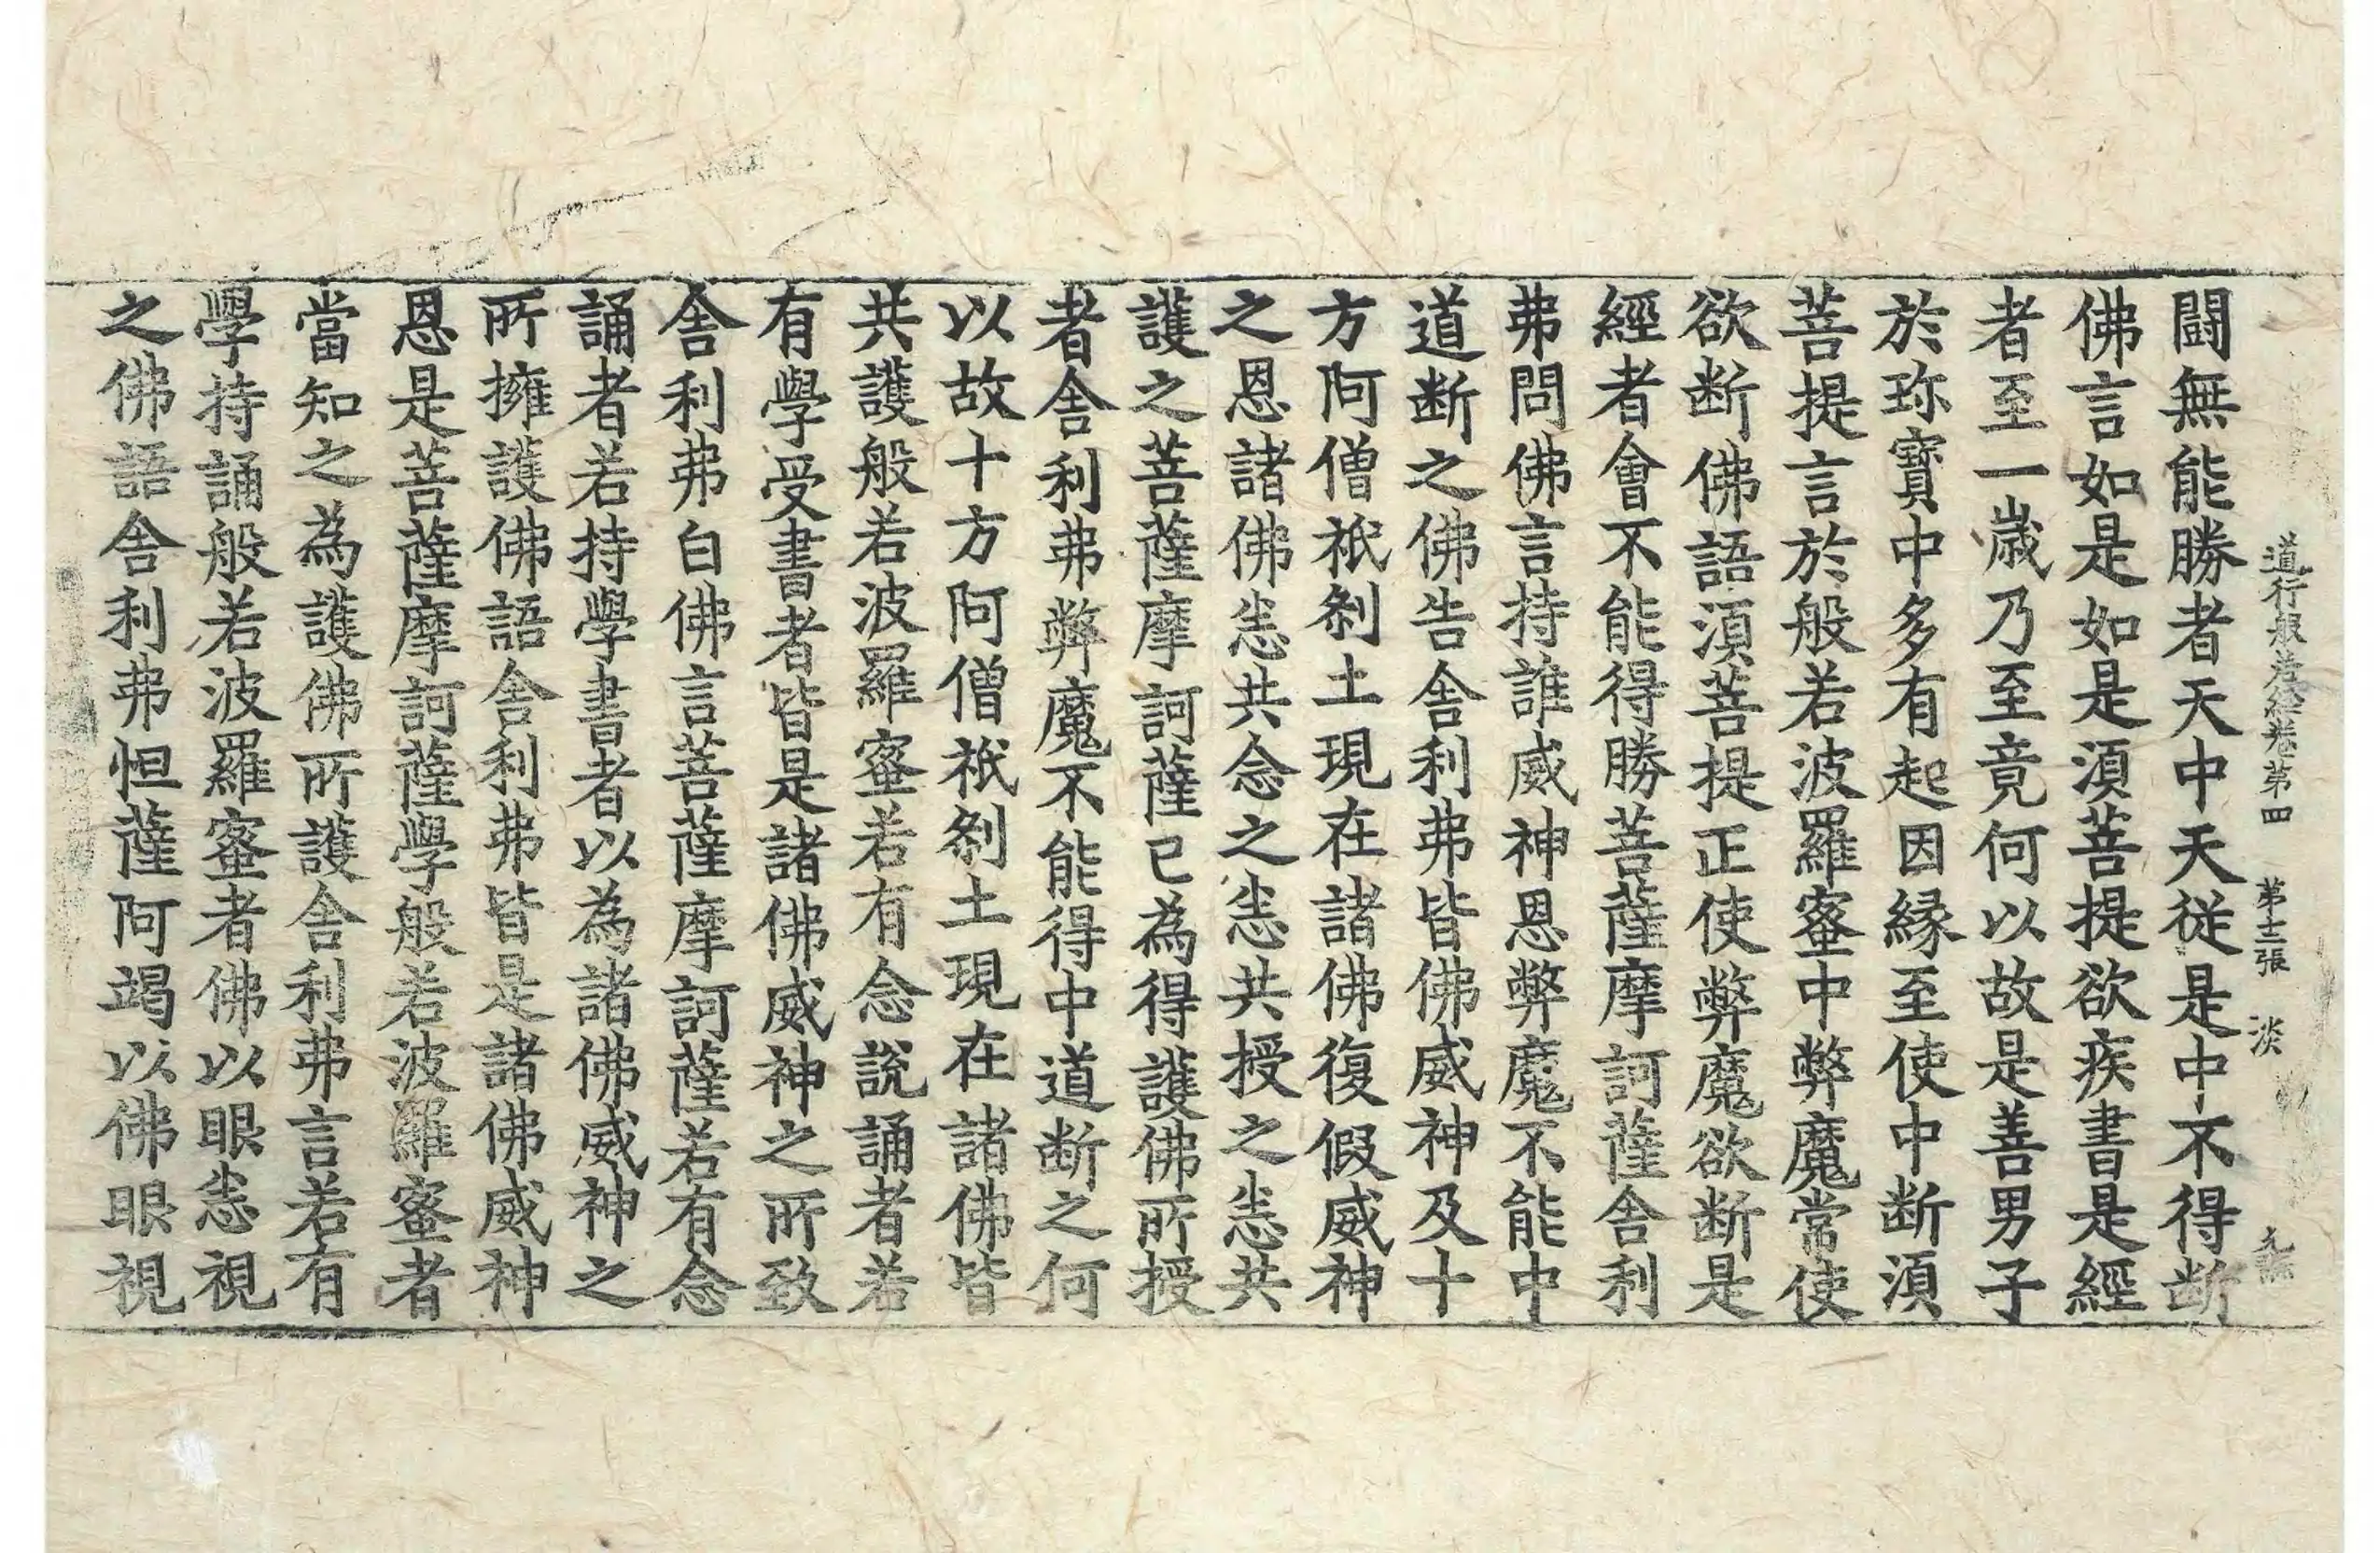 道行般若経巻第四　第十二張　淡
闘無能勝者天中天従是中不得断
佛言如是如是湏菩提欲疾書是經
者至一歳乃至竟何以故是善男子
於珎寶中多有起因縁至使中断湏
菩提言於般若波羅蜜中弊魔常使
欲断佛語湏菩提正使弊魔欲断是
經者會不能得勝菩薩摩訶薩舎利
弗問佛言持誰威神恩弊魔不能中
道断之佛告舎利弗皆佛威神及十
方阿僧祇刹土現在諸佛復假威神
之恩諸佛悉共念之悉共授之悉共
護之菩薩摩訶薩已為得護佛所授
者舎利弗弊魔不能得中道断之何
以故十方阿僧祇刹土現在諸佛皆
共護般若波羅蜜若有念說誦者若
有學受書者皆是諸佛威神之所致
舎利弗白佛言菩薩摩訶薩若有念
誦者若持學書者以為諸佛威神之
所擁護佛語舎利弗皆是諸佛威神
恩是菩薩摩訶薩學般若波羅蜜者
當知之為護佛所護舎利弗言若有
學持誦般若波羅蜜者佛以眼悉視
之佛語舎利弗怛薩阿竭以佛眼視